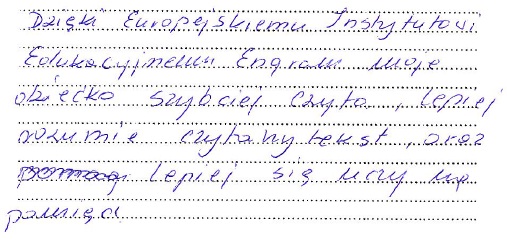 Dzięki Europejskiemu Instytutowi
Edukacyjnemu Engram moje
dziecko szybciej czyta, lepiej
rozumie czytany tekst, oraz
lepiej się uczy na
pamięć